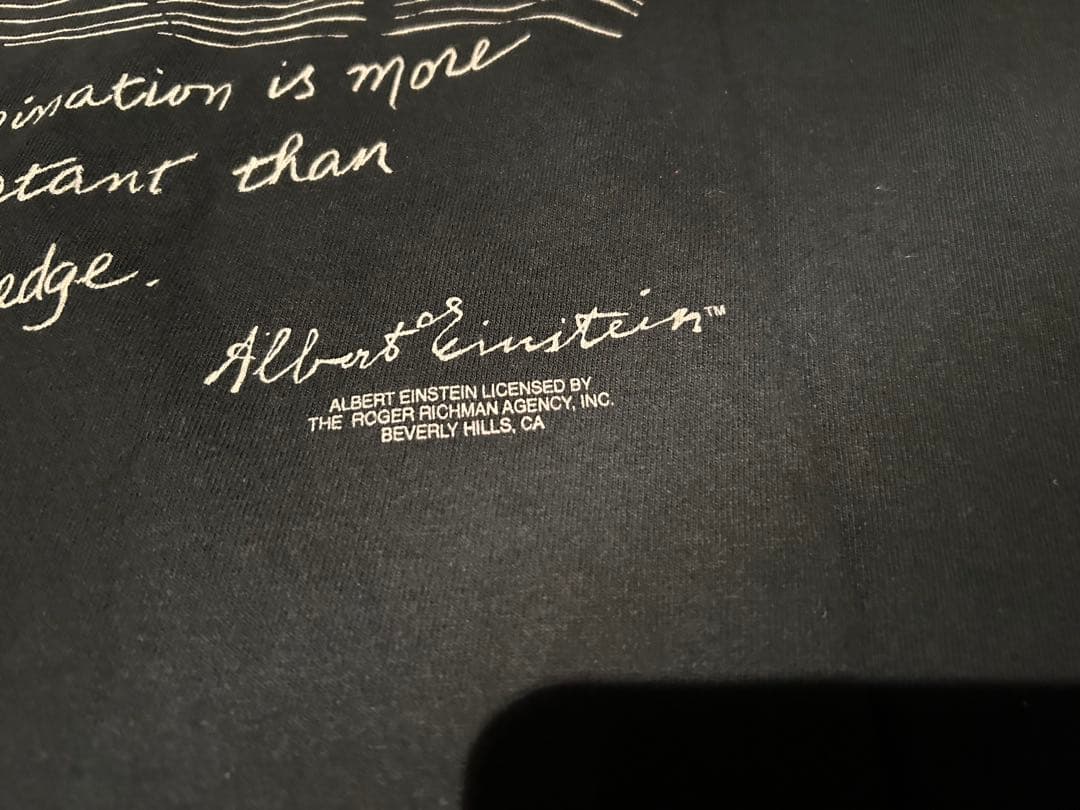 ination is more
tant than
edge.
Albert Einstein™
ALBERT EINSTEIN LICENSED BY
THE ROGER RICHMAN AGENCY, INC.
BEVERLY HILLS, CA